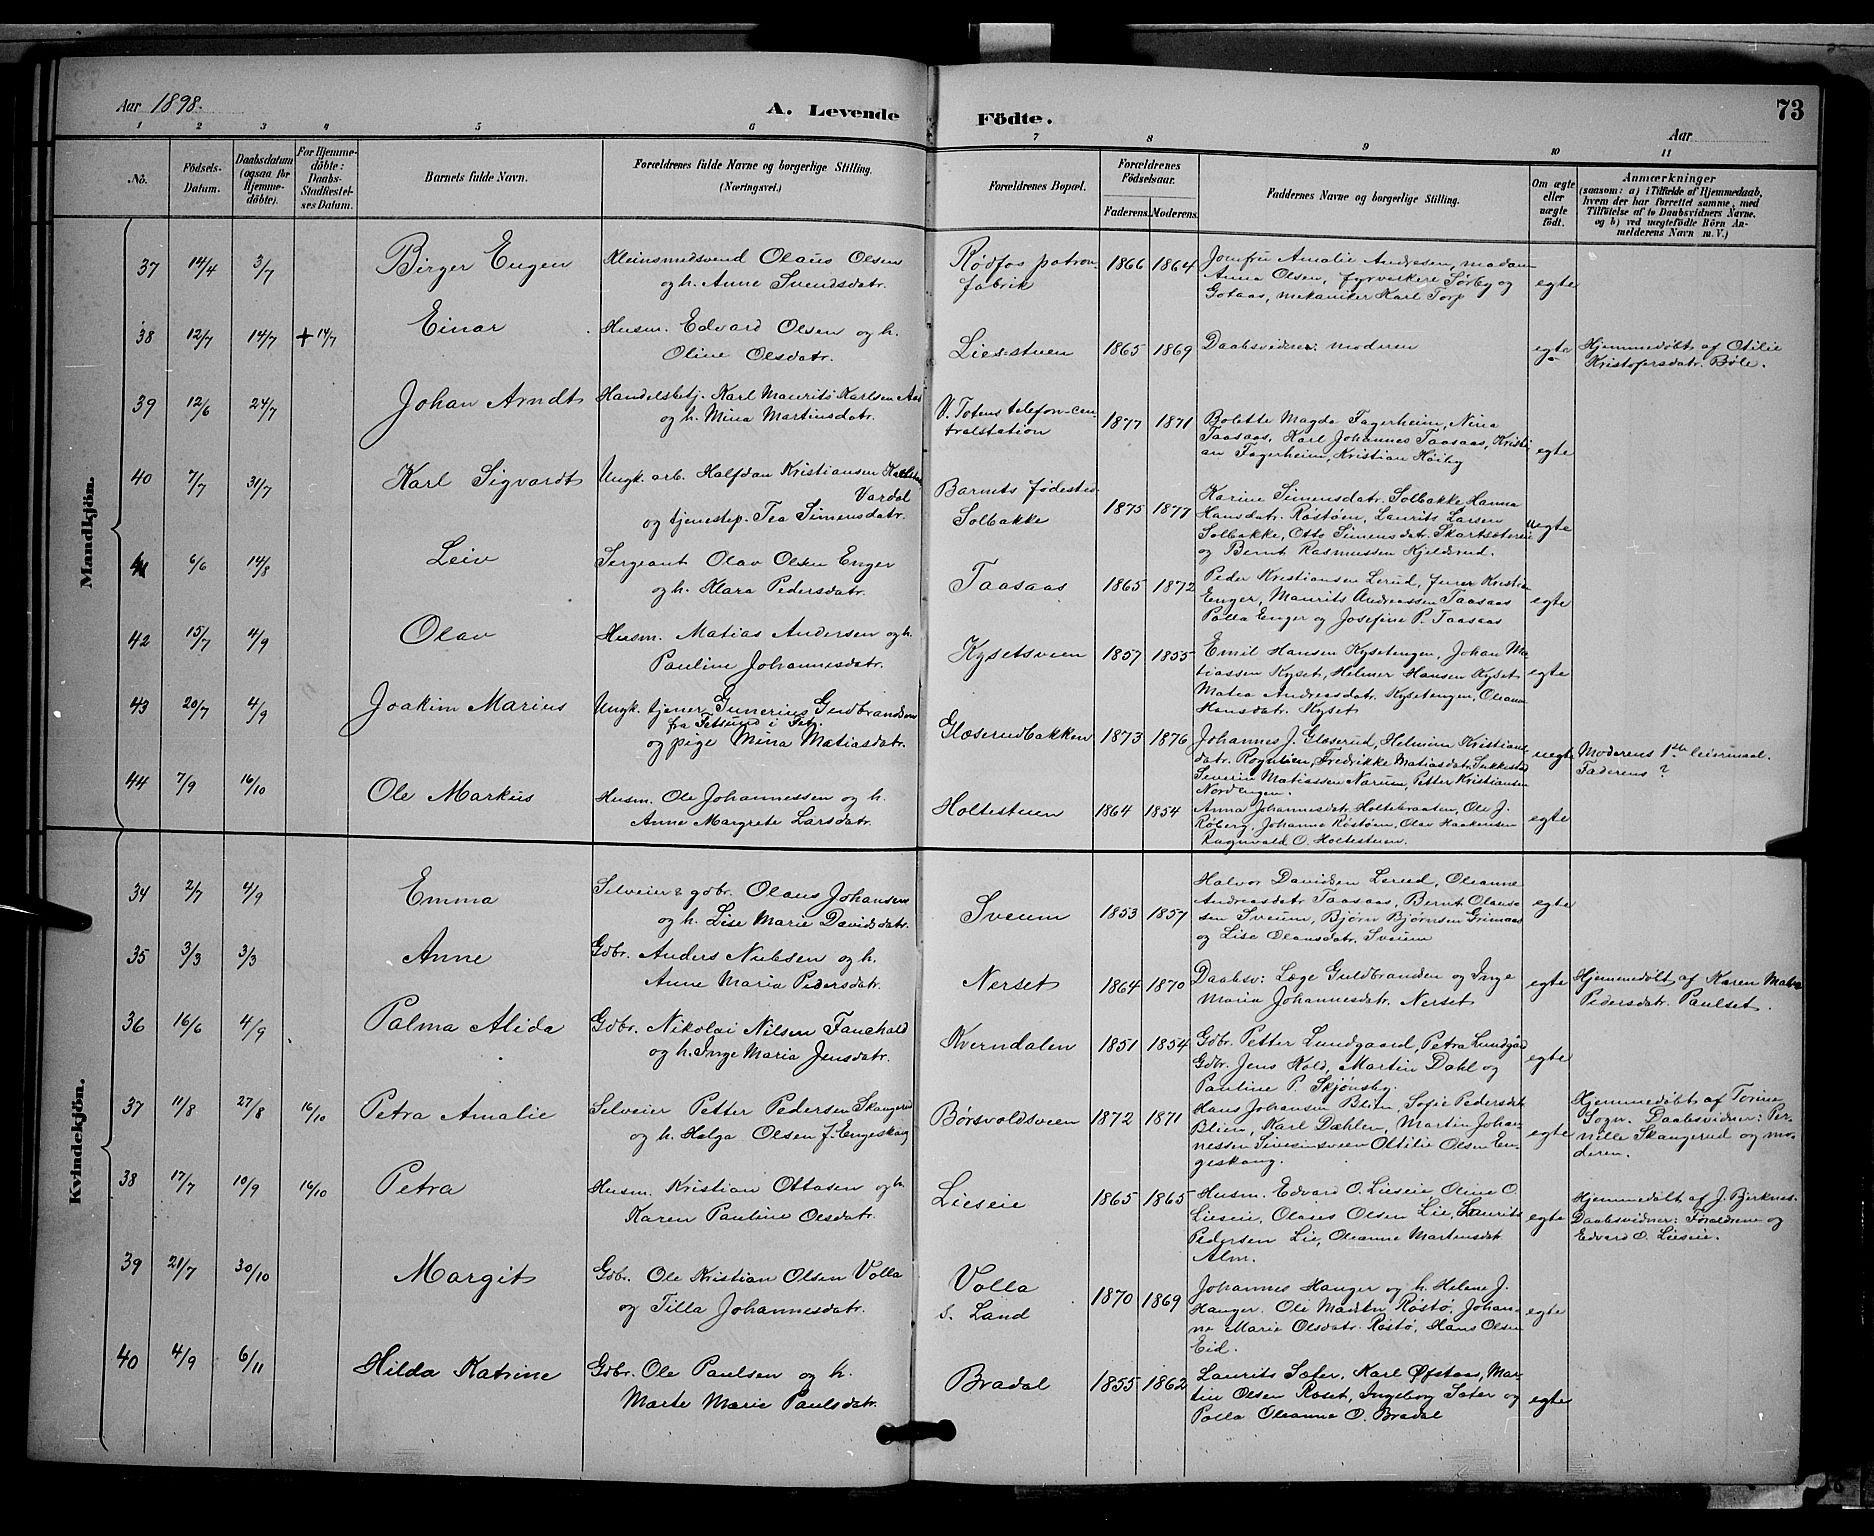 Aar 1898. A. Levende Födte. Aar 73
1 2 3 4 5 6 7 8 9 10 11
No. Födsels-Datum. Daabsdatum (ogsaa for Hjemmedöbte). For Hjemmedöbte: Daabs-Stadfæstelses Datum. Barnets fulde Navn. Forældrenes fulde Navne og borgerlige Stilling. (Næringsvei.) Forældrenes Bopæl. Forældrenes Födselsaar. Faderens. Moderens. Faddernes Navne og borgerlige Stilling. Om ægte eller uægte födt. Anmærkninger (saasom: a) i Tilfælde af Hjemmedaab, hvem der har forrettet samme, med Tilföielse af to Daabsvidners Navne, og b) ved uægtefödte Börn Anmelderens Navn m. V.)
Mandkjön.
37 14/4 3/7 Birger Eugen Kleinsmedsvend Olaus Olsen
og h. Anne Svendsdatr.
Rødfos patron-
fabrik
1866 1864
Jomfru Amalie Andresen, madam
Anna Olsen, fyrverkere Sørby og
Gotaas, mekaniker Karl Torp
egte
38 12/7 14/7 + 14/7 Einar Husm. Edvard Olsen og h.
Oline Olsdatr.
Liesstuen 1865 1869 Daabsvidner: moderen
egte
Hjemmedøbt af Otilie
Kristofersdatr. Bøle.
39 12/6 24/7 Johan Arndt Handelsbetj. Karl Maurits Karlsen Aas
og h. Mina Martinsdatr.
V. Totens telefon-cen-
tralstation
1877 1871
Bolette Magda Fagerheim, Nina
Taasaas, Karl Johannes Taasaas, Kristi
an Fagerheim, Kristian Høiby
egte
40 7/7 31/7 Karl Sigvardt Ungk. arb. Halfdan Kristiansen
Vardal
og tjenestep. Tea Simensdatr.
Barnets fødested
Solbakke
1875 1877
Karine Simensdatr. Solbakke Hanna
Hansdatr. Røstøen, Laurits Larsen
Solbakke, Otto Simensdatr.
og Bernt Rasmussen Kjeldsrud.
uegte
41 6/6 14/8 Leiv Sergeant Olav Olsen Enger
og h. Klara Pedersdatr.
Taasaas 1865 1872
Peder Kristiansen Lerud, Kristian
Enger, Maurits Andreassen Taasaas
Palla Enger og Josefine P. Taasaas
egte
42 15/7 4/9 Olav Husm. Matias Andersen og h.
Pauline Johannesdatr.
Kysetsveen 1857 1855
Emil Hansen Kysetengen, Johan Ma
tiassen Kyset, Helmer Hansen Kyset
Matea Andreasdatr. Kysetengen, Oleane
Hansdatr. Kyset
egte
43 20/7 4/9 Joakim Marius Ungk. tjener Gunerius Gudbrandsen
fra Fetsund i Fet.
og pige Mina Matiasdatr.
Glæserudbakken 1873 1876
Johannes J. Glæserud, Helmine Kristians
datr. Rognlien, Fredrikke Matiasdatr. Sukkestad
Severin Matiassen Narum, Petter Kristiansen
Nordengen.
uegte
Moderens 1ste leiermaal.
Faderens ?
44 7/9 16/10 Ole Markus Husm. Ole Johannessen og h.
Anne Margrete Larsdatr.
Holtestuen 1864 1854
Anna Johannesdatr. Holtebraaten, Ole J.
Røberg, Johanne Røstøen, Olav Haakensen
Ragnvald O. Holtestuen.
egte
Kvindekjön.
34 2/7 4/9 Emma Selveier & gdbr. Olaus Johansen
og h. Lise Marie Davidsdatr.
Sveum 1853 1857
Halvor Davidsen Lerud, Oleanne
Andreasdatr Taasaas, Bernt Olaus-
sen Sveum, Bjørn Bjørnsen Grimaas
og Lise Olausdatr. Sveum
egte
35 3/3 3/3 Anne Gdbr. Anders Nielsen og h.
Anne Maria Pedersdatr.
Nerset 1864 1870
Daabsv: Læge Guldbrandsen og Inge
Maria Johannesdatr. Nerset
egte
Hjemmedøbt af Karen Matea
Pedersdatr. Paulset.
36 16/6 4/9 Palma Alida Gdbr. Nikolai Nilsen Fauchald
og h. Inge Maria Jensdatr.
Kverndalen 1851 1854
Gdbr. Petter Lundgaard, Petra Lundgård
Gdbr. Jens Kold, Martin Dahl og
Pauline P. Skjønsby.
egte
37 11/8 27/8 16/10 Petra Amalie Selveier Petter Pedersen Skangerud
og h. Helga Olsen f. Engeskaug
Børsvoldsveen 1872 1871
Hans Johansen Blien, Sofie Pedersdatr
Blien, Karl Dæhlen, Martin Johan-
nessen Simensveen Ottilie Olsen En
geskaug.
egte
Hjemmedøbt af Torina
Sogn. Daabsvidner: Per-
nille Skangerud og mo-
deren.
38 17/7 10/9 16/10 Petra Husm. Kristian Ottosen og h.
Karen Pauline Olsdatr.
Lieseie 1865 1865
Husm. Edvard O. Lieseie, Oline O.
Lieseie, Olaus Olsen Lie, Laurits
Pedersen Lie, Oleanne Martensdatr.
Alm.
egte
Hjemmedøbt af J. Bjerknes.
Daabsvidner: Forældrene og
Edvard O. Lieseie.
39 21/7 30/10 Margit Gdbr. Ole Kristian Olsen Volla
og Tilla Johannesdatr.
Volla
S. Land
1870 1869
Johannes Hanger og h. Helene J.
Hanger. Ole Madsen Røstø, Johan-
ne Marie Olsdatr. Røstø, Hans Olsen
Eid.
egte
40 4/9 6/11 Hilda Katrine Gdbr. Ole Paulsen og h.
Marte Marie Paulsdatr.
Bradal 1855 1862
Laurits Sæter, Karl Øfstaas, Mar-
tin Olsen Roset, Ingeborg Sæter og
Palla Oleanna O. Bradal
egte